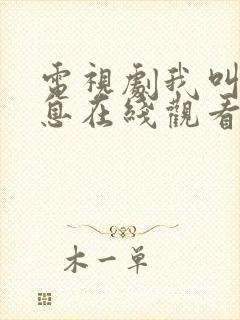 電視劇我叫
息在綫觀看
木一单